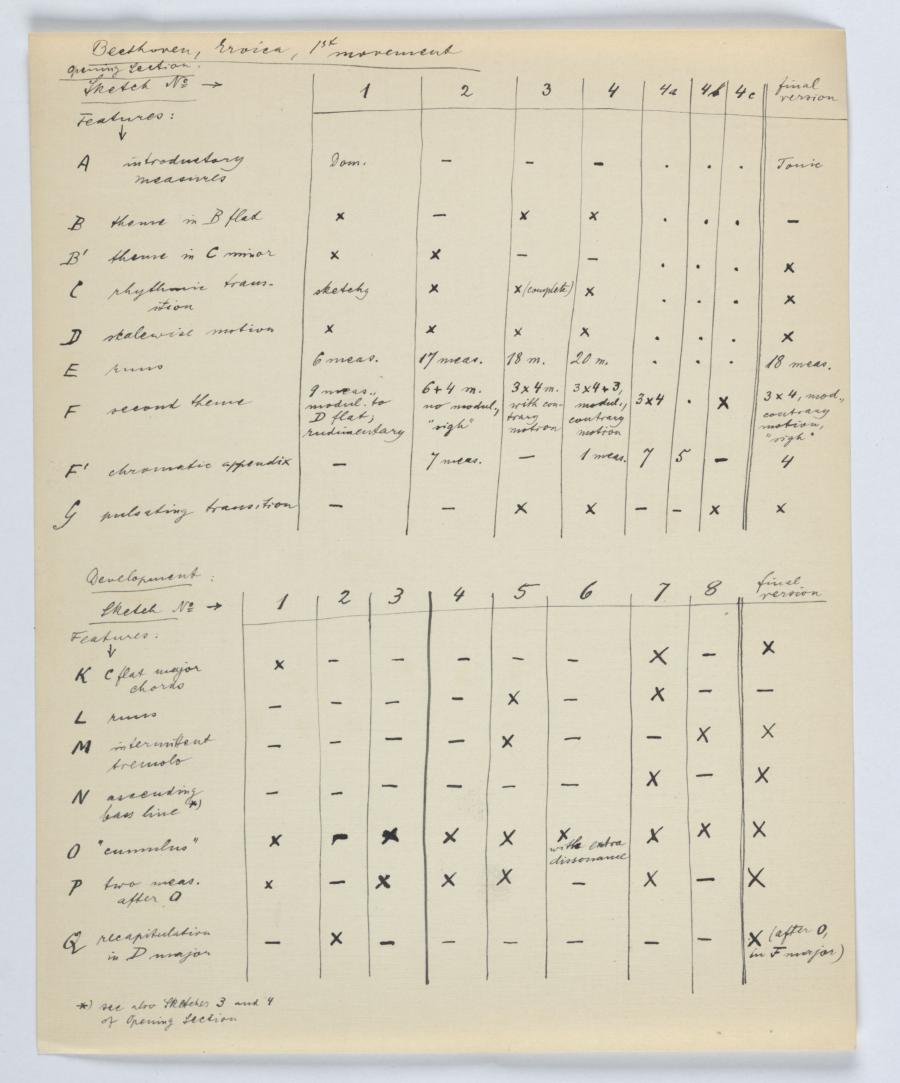 Beethoven, Eroica, 1st movement
Opening Section:
Sketch No → 1 2 3 4 4a 4b 4c final version
Features:
↓
A introductory measures Dom. – – – . . . Tonic
B theme in B flat x – x x . . . –
B' theme in C minor x x – – . . . x
C rhythmic transition sketchy x x (complete) x . . . x
D skalewise motion x x x x . . . x
E runs 6 meas. 17 meas. 18 m. 20 m. . . . 18 meas.
F second theme 9 meas., modul. to D flat; rudimentary 6+4 m. no modul., "sigh" 3x4 m. with contrary motion 3x4+3, modul., contrary motion 3x4 . x 3x4, mod., contrary motion, "sigh"
F' chromatic appendix – 7 meas. – 1 meas. 7 5 – 4
G pulsating transition – – x x – – x x
Development:
Sketch No → 1 2 3 4 5 6 7 8 final version
Features:
↓
K C flat major chords x – – – – – x – x
L runs – – – – x – x – –
M intermittent tremolo – – – – x – – x x
N ascending bass line *) – – – – – – x – x
O "cumulus" x – x x x x with extra dissonance x x x
P two meas. after O x – x x x – x – x
Q recapitulation in D major – x – – – – – – x (after O, in F major)
*) see also Sketches 3 and 4
of Opening Section